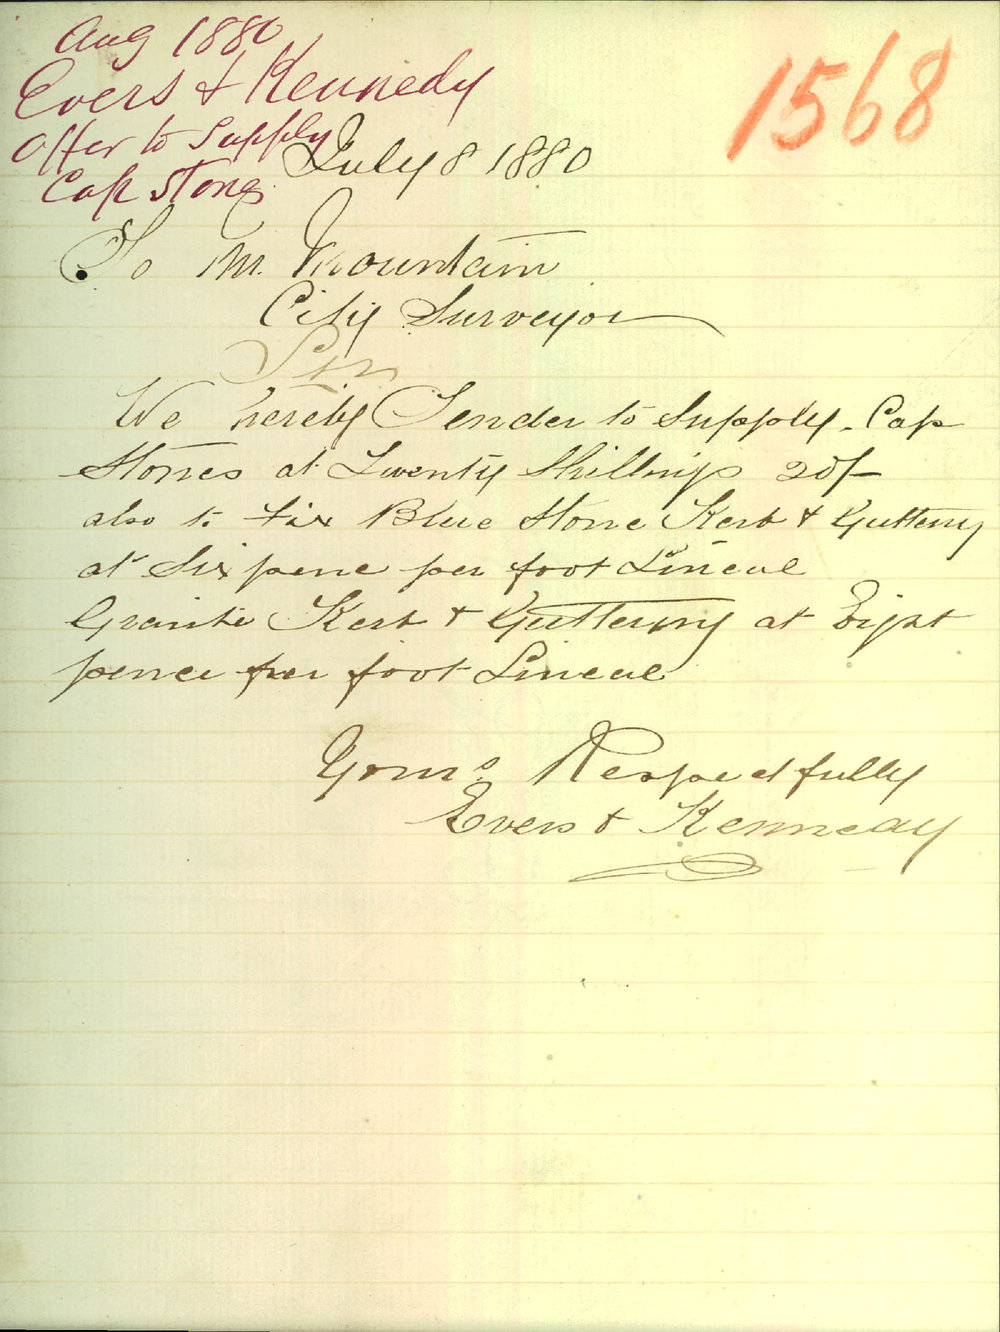 Aug 1880
Evers & Kennedy
Offer to Supply
Cap Stones
1568
July 8 1880
To M. Mountain
City Surveyor
Sir
We hereby Tender to Supply. Cap
Stones at Twenty Shillings 20/-
also to fix Blue Stone Kerb & Guttering
at Six pence per foot Lineal
Granite Kerb & Guttering at Eight
pence per foot Lineal
Yours Respectfully
Evers & Kennedy